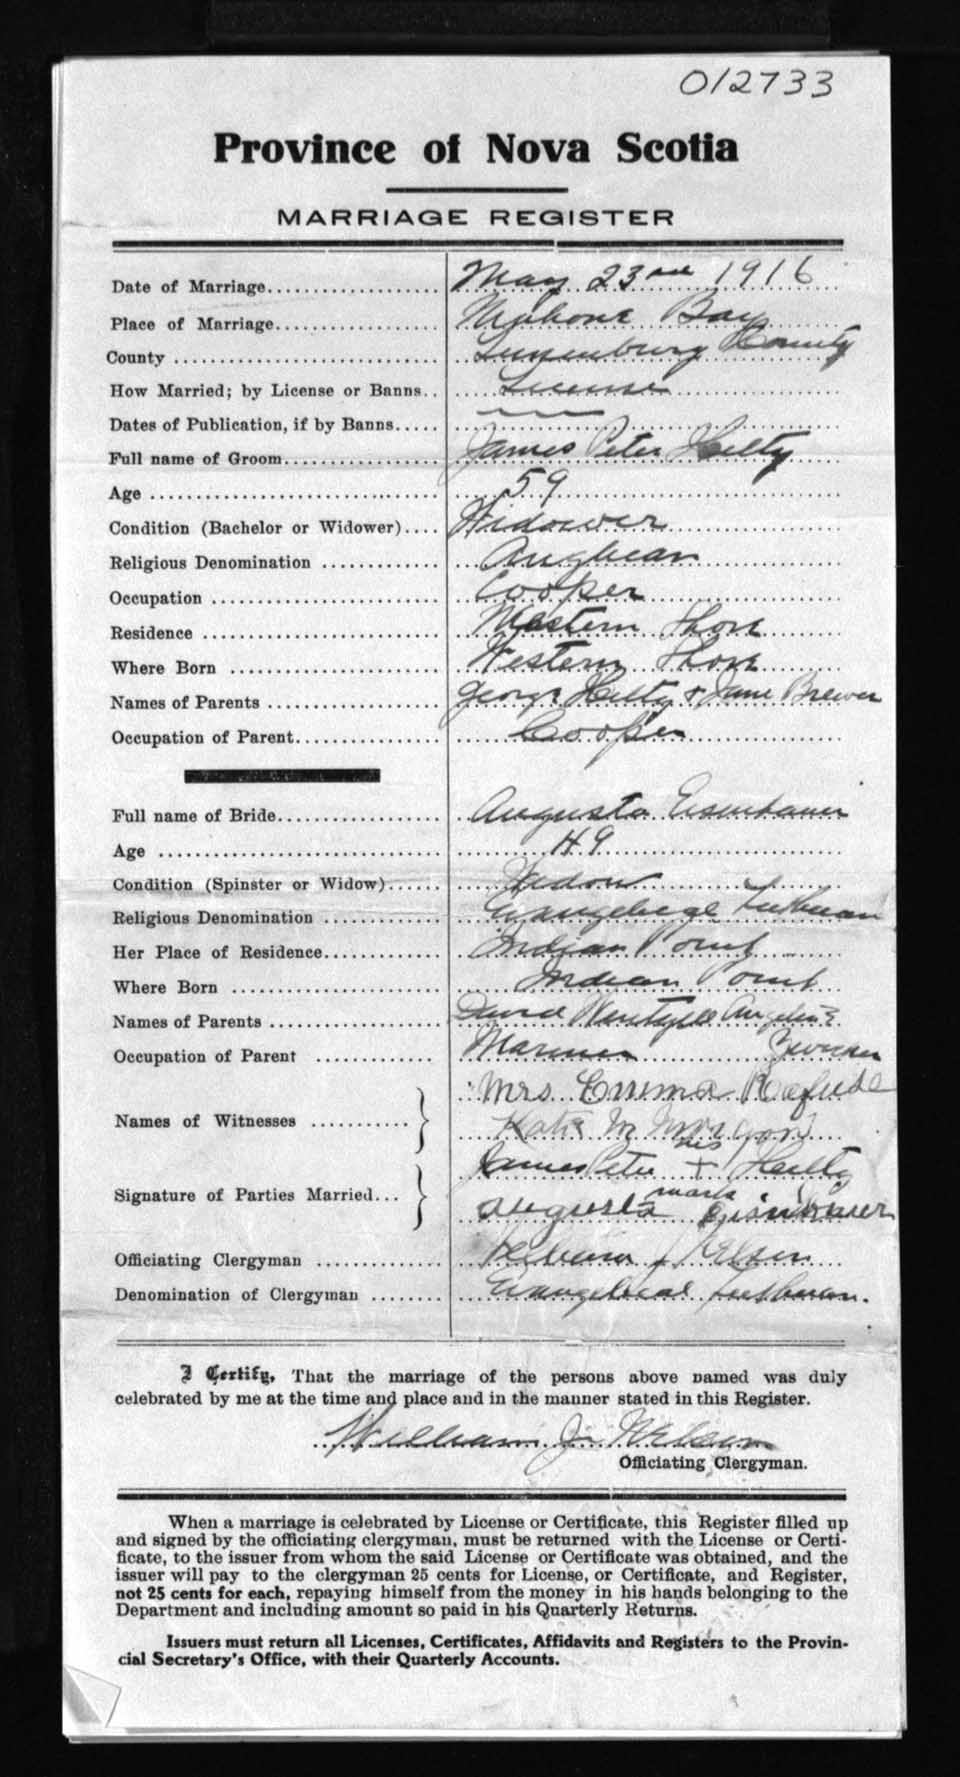 012733
Province of Nova Scotia
MARRIAGE REGISTER
Date of Marriage................... May 23rd 1916
Place of Marriage.................. Mahone Bay
County ............................. Lunenburg County
How Married; by License or Banns.. License
Dates of Publication, if by Banns..... —
Full name of Groom................. James Peter Hilty
Age ............................... 59
Condition (Bachelor or Widower).... Widower
Religious Denomination ............. Anglican
Occupation ......................... Cooper
Residence .......................... Western Shore
Where Born ......................... Western Shore
Names of Parents ................... George Hilty & Jane Brewer
Occupation of Parent................ Cooper
Full name of Bride.................. Augusta Eisenhauer
Age ................................ 49
Condition (Spinster or Widow)...... Widow
Religious Denomination ............. Evangelical Lutheran
Her Place of Residence............. Indian Point
Where Born ......................... Indian Point
Names of Parents ................... David Wentzell Angelina
Occupation of Parent ............... Mariner Zwicker
Mrs. Emma Rafuse
Names of Witnesses ...........
Katie M Morgan
his
James Peter + Hilty
Signature of Parties Married...
mark
Augusta Eisenhauer
Officiating Clergyman .............. William J Nelson
Denomination of Clergyman ........ Evangelical Lutheran.
I Certify, That the marriage of the persons above named was duly
celebrated by me at the time and place and in the manner stated in this Register.
William J. Nelson
Officiating Clergyman.
When a marriage is celebrated by License or Certificate, this Register filled up
and signed by the officiating clergyman, must be returned with the License or Certi-
ficate, to the issuer from whom the said License or Certificate was obtained, and the
issuer will pay to the clergyman 25 cents for License, or Certificate, and Register,
not 25 cents for each, repaying himself from the money in his hands belonging to the
Department and including amount so paid in his Quarterly Returns.
Issuers must return all Licenses, Certificates, Affidavits and Registers to the Provin-
cial Secretary's Office, with their Quarterly Accounts.